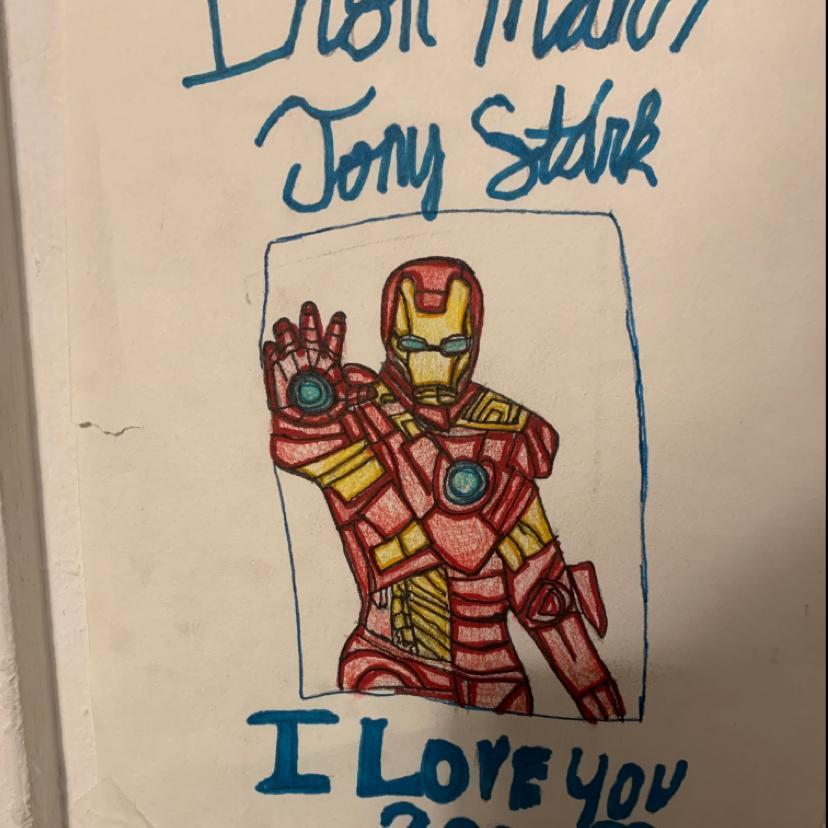 Iron Man/
Tony Stark
I LOVE YOU